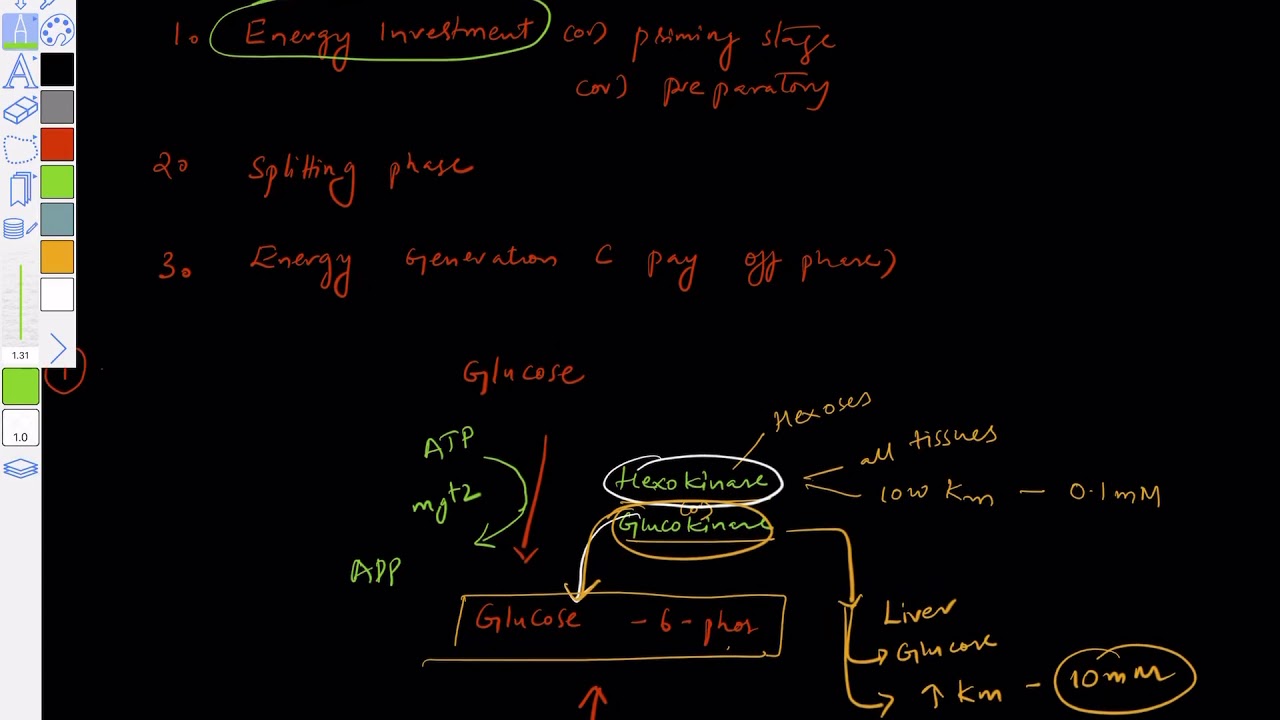 1. Energy Investment (or) priming stage
(or) preparatory
2. Splitting phase
3. Energy Generation ( pay off phase)
1
Glucose
Hexoses
ATP
all tissues
Hexokinase
mg+2
low Km - 0.1mM
(or)
Glucokinase
ADP
Glucose - 6 - phos
Liver
Glucose
↑ Km - 10mM
A
A
1.31
1.0